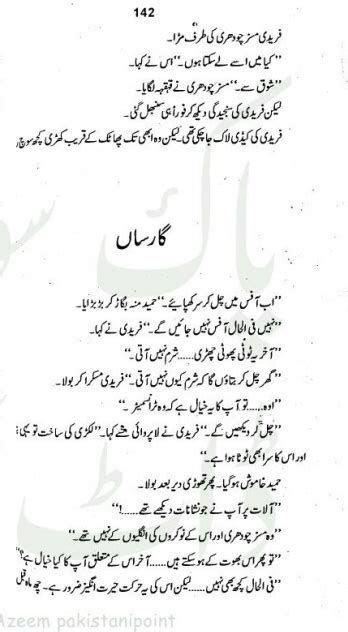 142
فریدی مسز چودھری کی طرف مڑا۔
’’کیا میں اسے لے سکتا ہوں۔‘‘ اس نے کہا۔
’’شوق سے۔‘‘ مسز چودھری نے قہقہہ لگایا۔
لیکن فریدی کی سنجیدگی دیکھ کر فوراً ہی سنبھل گئی۔
فریدی کی کیڈی لاک جا چکی تھی۔ لیکن وہ ابھی تک پھاٹک کے قریب کھڑی کچھ سوچ ر
گارساں
’’اب آفس میں چل کر سر کھپائیے۔‘‘ حمید منہ بگاڑ کر بڑبڑایا۔
’’نہیں فی الحال آفس نہیں جائیں گے۔‘‘ فریدی نے کہا۔
’’آخر یہ ٹوٹی پھوٹی چھڑی......شرم نہیں آتی۔‘‘
’’گھر چل کر بتاؤں گا کہ شرم کیوں نہیں آتی۔‘‘ فریدی مسکرا کر بولا۔
’’اوہ......تو آپ کا یہ خیال ہے کہ وہ ٹرانسمیٹر۔‘‘
’’چل کر دیکھیں گے۔‘‘ فریدی نے لاپروائی سے کہا۔ ’’لکڑی کی ساخت تو یہی
اور اس کا سرا بھی ٹوٹا ہوا ہے۔‘‘
حمید خاموش ہو گیا۔ پھر تھوڑی دیر بعد بولا۔
’’آلات پر آپ نے جو نشانات دیکھے تھے......!‘‘
’’وہ مسز چودھری اور اس کے نوکروں کی انگلیوں کے نہیں تھے۔‘‘
’’تو پھر اس بھوت کے ہو سکتے ہیں......آخر اس کے متعلق آپ کا کیا خیال ہے؟‘‘
’’فی الحال کچھ بھی نہیں......لیکن اس کی یہ حرکت حیرت انگیز ضرور ہے۔ چھ ماہ قبل
Azeem pakistanipoint